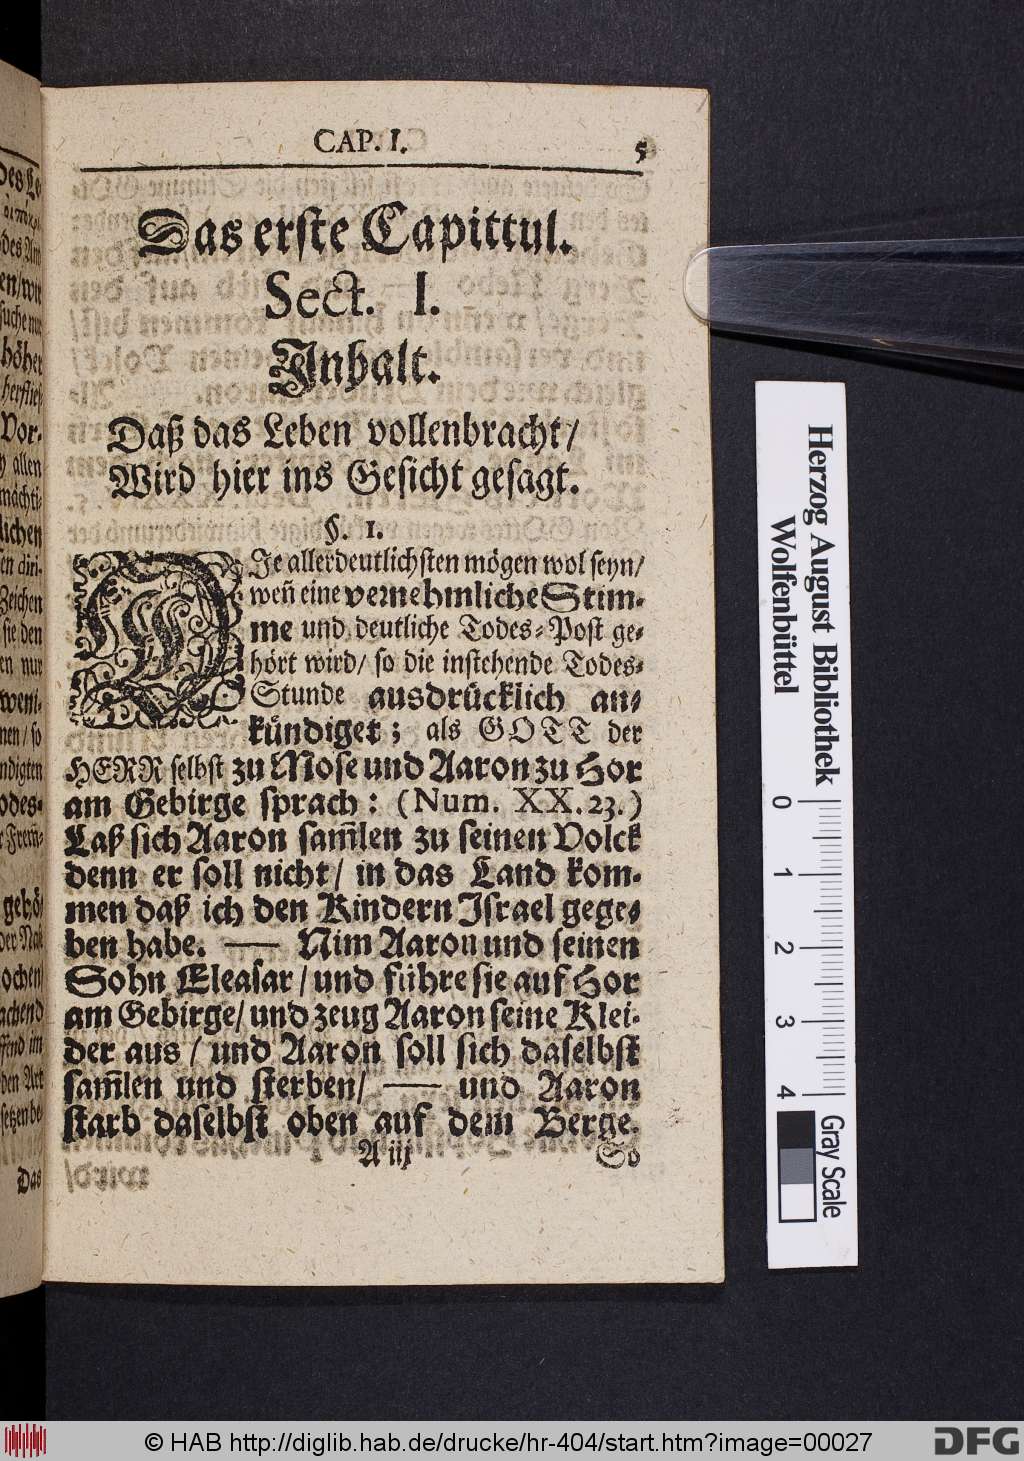 CAP. I. 5
Das erste Capittul.
Sect. I.
Inhalt.
Daß das Leben vollenbracht/
Wird hier ins Gesicht gesagt.
§. 1.
DIe allerdeutlichsten mögen wol seyn/
weñ eine vernehmliche Stim-
me und deutliche Todes-Post ge-
hört wird/ so die instehende Todes-
Stunde ausdrücklich an-
kündiget; als GOTT der
HERR selbst zu Mose und Aaron zu Hor
am Gebirge sprach: (Num. XX. 23.)
Laß sich Aaron sam̃len zu seinen Volck
denn er soll nicht/ in das Land kom-
men daß ich den Kindern Israel gege-
ben habe. — Nim Aaron und seinen
Sohn Eleasar/ und führe sie auf Hor
am Gebirge/ und zeug Aaron seine Klei-
der aus/ und Aaron soll sich daselbst
sam̃len und sterben/ — und Aaron
starb daselbst oben auf dem Berge.
A iij So
höher
Vor-
allen
mächti-
lichen
Zeichen
sie den
en nur
weni-
nen/ so
ndigten
odes-
gehö-
ochen/
achend
ffend im
ben Art
Das
Herzog August Bibliothek
Wolfenbüttel
0 1 2 3 4
Gray Scale
© HAB http://diglib.hab.de/drucke/hr-404/start.htm?image=00027
DFG